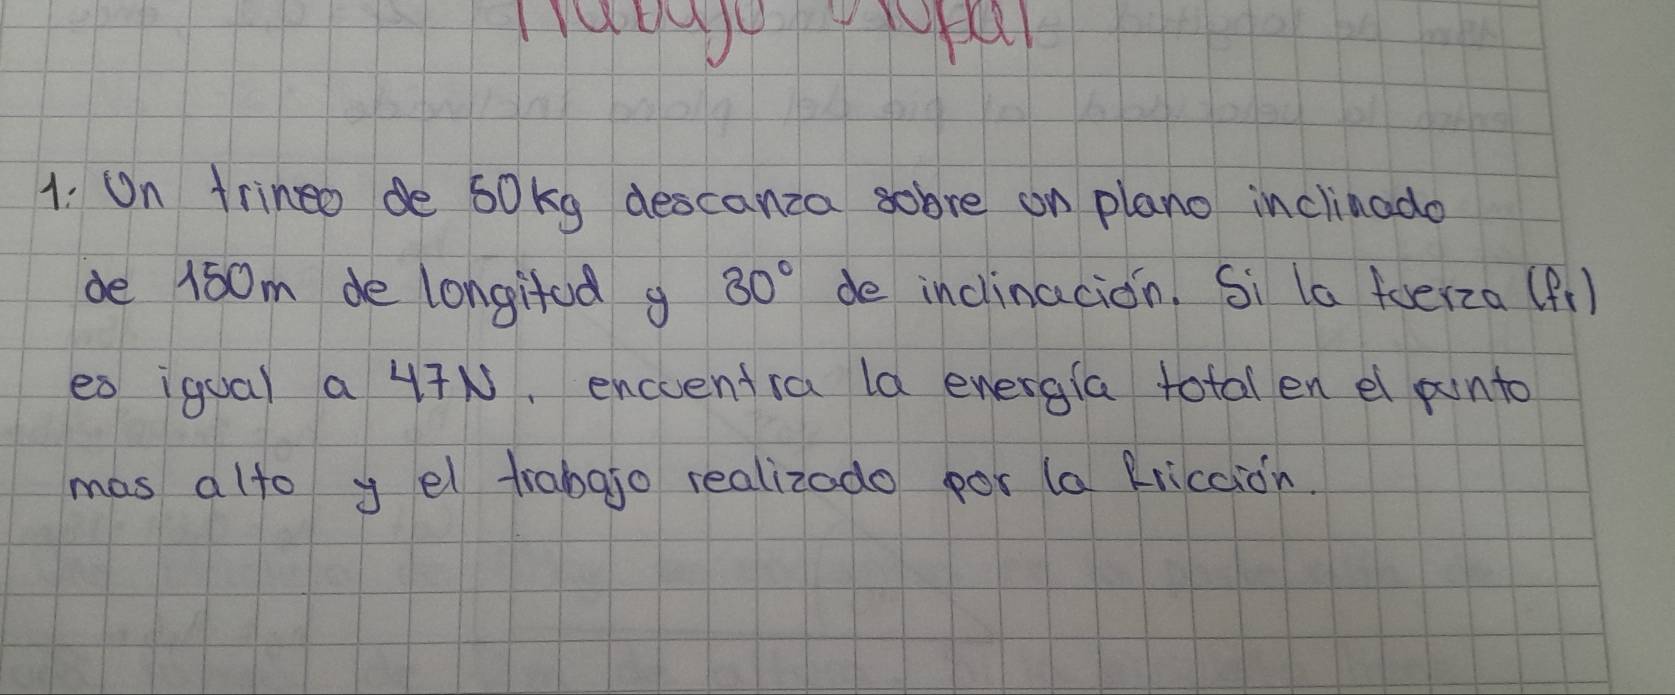 Trabajo
1. Un trineo de 50kg descanza sobre un plano inclinado
de 150m de longitud y 30° de inclinación. Si la fuerza (fr)
es igual a 47N, encuentra la energía total en el punto
mas alto y el trabajo realizado por la fricción.